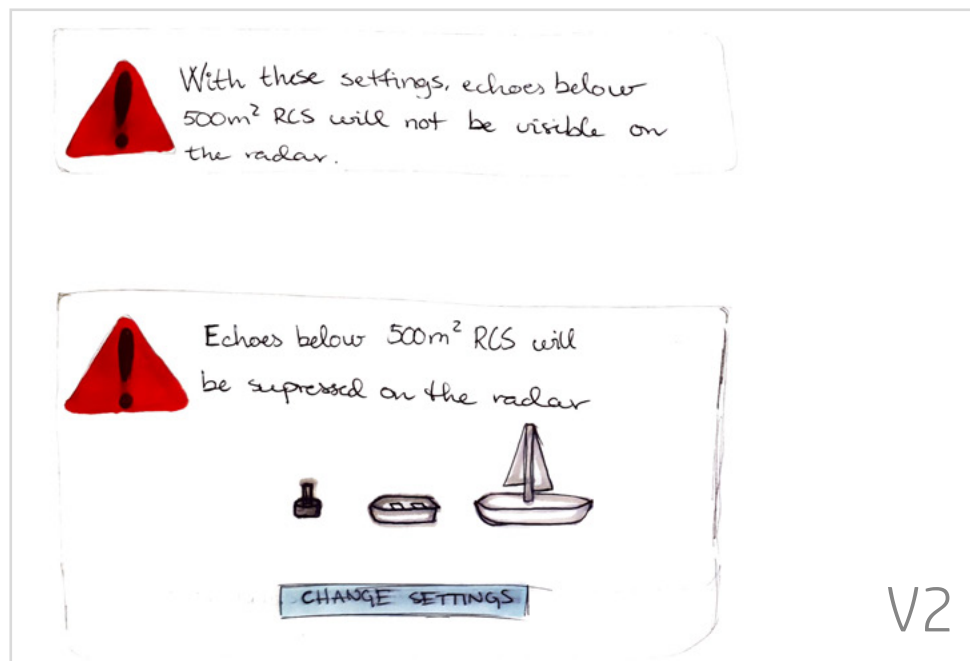 With these settings, echoes below
500m² RCS will not be visible on
the radar.
Echoes below 500m² RCS will
be supressed on the radar
CHANGE SETTINGS
V2